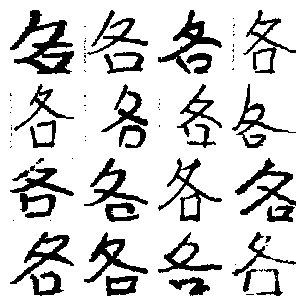 各各各各
各各各各
各各各各
各各各各